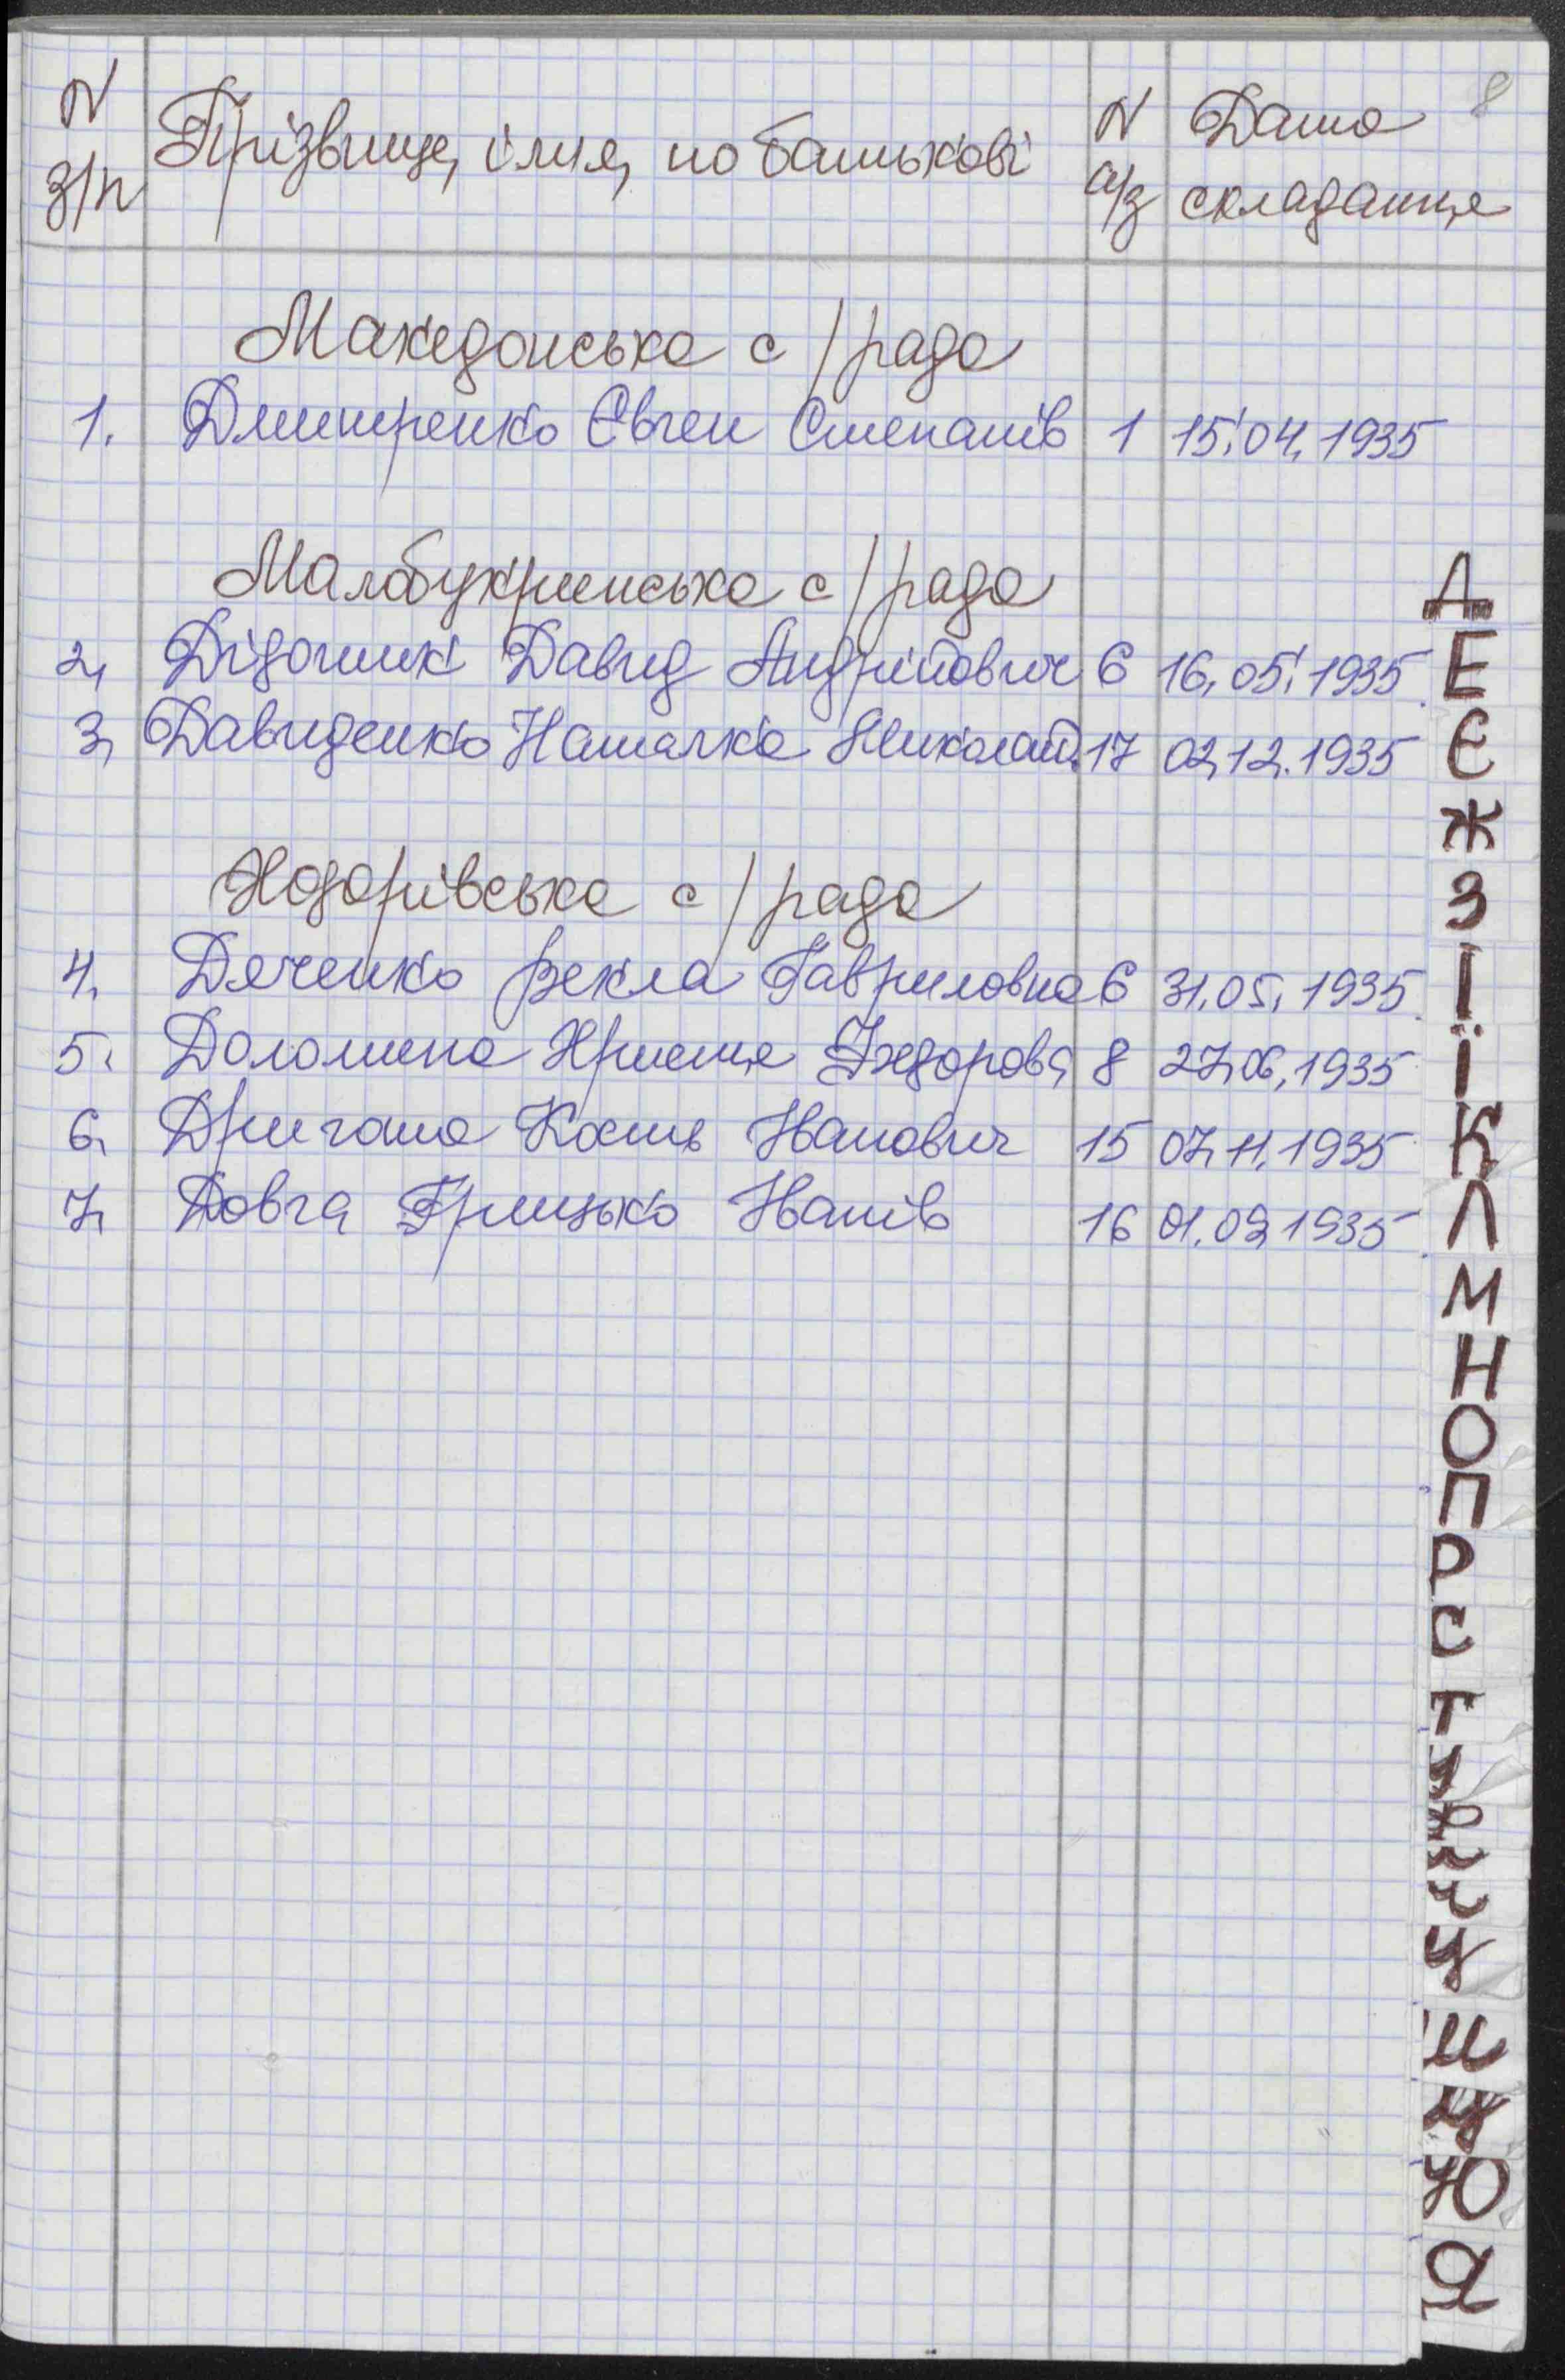 8
N з/п Прізвище, ім'я, по батькові N а/з Дата складання
Македонська с/рада
1. Дмитренко Євген Степанів 1 15.04.1935
Малобукринська с/рада
2. Дідочник Давид Андрійович 6 16.05.1935
3. Давиденко Наталка Миколаїв. 17 02.12.1935
Ходорівська с/рада
4. Дяченко Векла Гавриловна 6 31.05.1935
5. Доломина Христя Федоровa 8 27.06.1935
6. Дригота Кость Іванович 15 07.11.1935
7. Довга Грицько Іванів 16 01.09.1935
Д
Е
Є
Ж
З
І
Ї
К
Л
М
Н
О
П
Р
С
Т
У
Ф
Х
Ц
Ш
Щ
Ю
Я